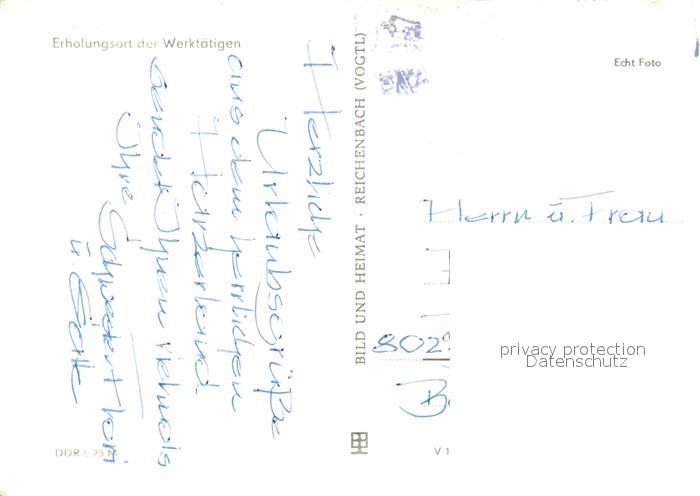 Erholungsort der Werktätigen
Herzliche
Urlaubsgrüße
aus dem herrlichen
Harzerland
sendet Ihnen vielmals
Ihre Schwester
u.
DDR 0,25 M
BILD UND HEIMAT · REICHENBACH (VOGTL)
Echt Foto
Herrn u. Frau
802
privacy protection
Datenschutz
V 1